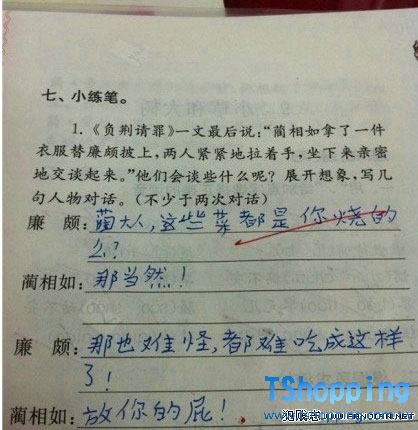 七、小练笔。
1.《负荆请罪》一文最后说:“蔺相如拿了一件
衣服替廉颇披上,两人紧紧地拉着手,坐下来亲密
地交谈起来。”他们会谈些什么呢?展开想象,写几
句人物对话。(不少于两次对话)
廉 颇:蔺大人,这些菜都是你烧的
么?
蔺相如:那当然!
廉 颇:那也难怪,都难吃成这样
了!
蔺相如:放你的屁!
TShopping